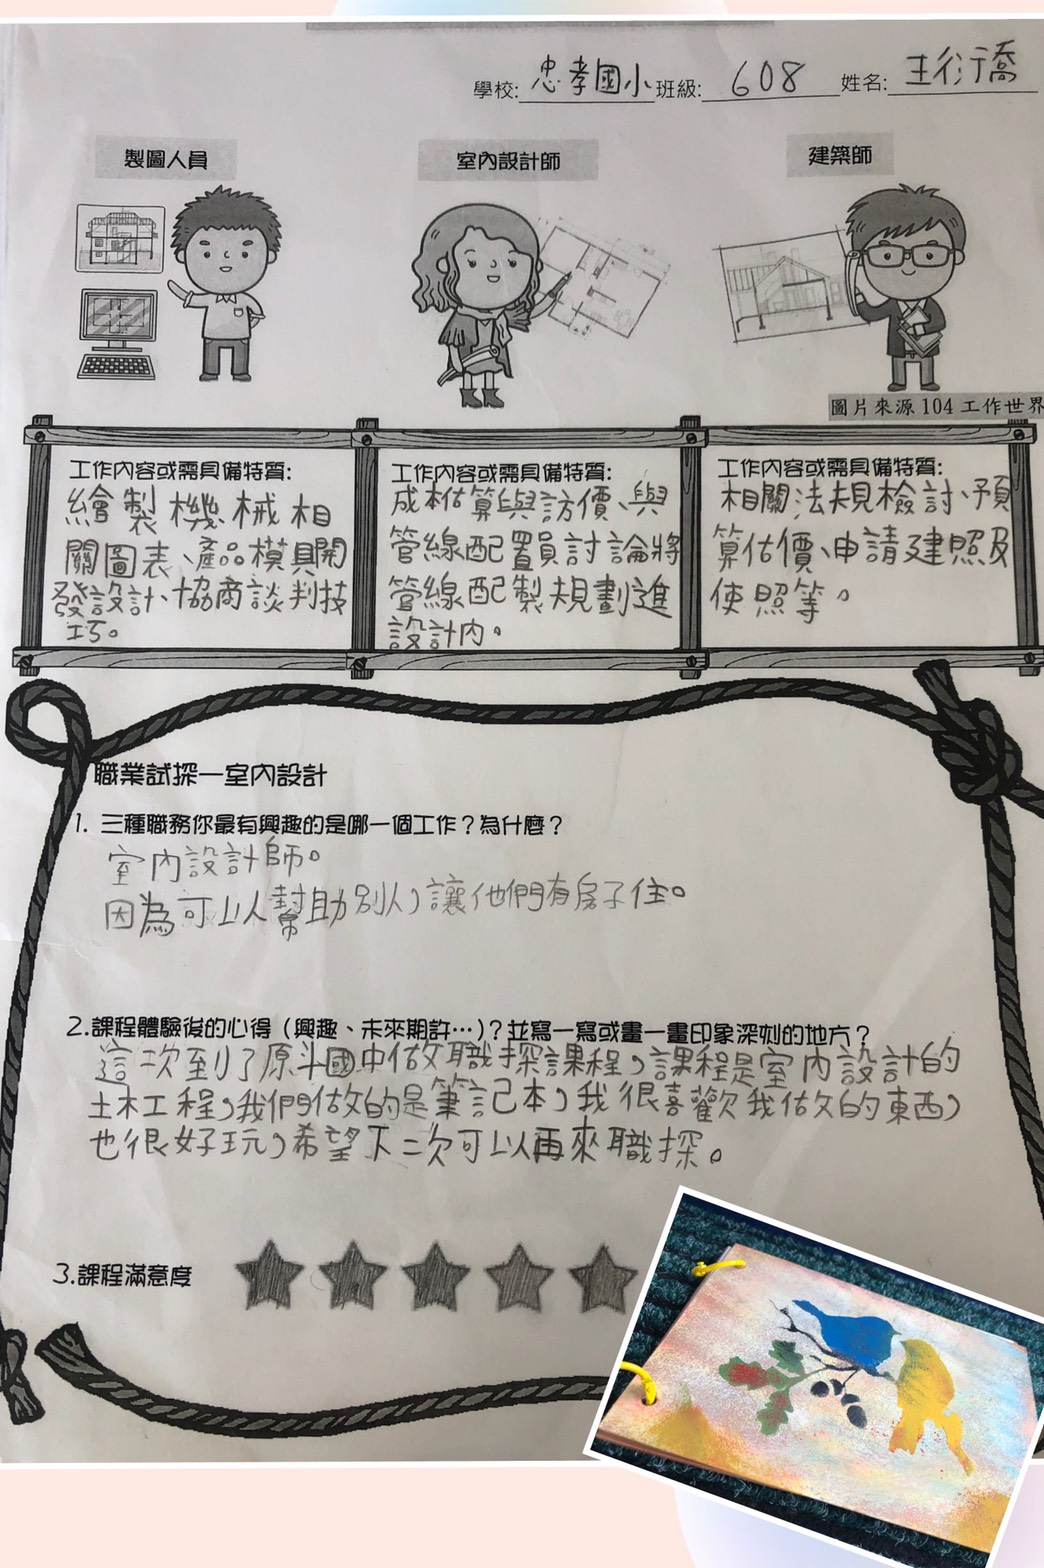 學校:忠孝國小班級:608 姓名:王衍僑
製圖人員
室內設計師
建築師
圖片來源 104 工作世界
工作內容或需具備特質:
繪製機械相
關圖表、產品模具開
發設計、協商談判技
巧。
工作內容或需具備特質:
成本估算與訪價、與
管線配置員討論將
管線配製規劃進
設計內。
工作內容或需具備特質:
相關法規檢討、預
算估價、申請建照及
使照等。
職業試探—室內設計
1. 三種職務你最有興趣的是哪一個工作?為什麼?
室內設計師。
因為可以幫助別人,讓他們有房子住。
2.課程體驗後的心得(興趣、未來期許…)?並寫一寫或畫一畫印象深刻的地方?
這次到了原斗國中做職探課程,課程是室內設計的
土木工程,我們做的是筆記本,我很喜歡我做的東西,
也很好玩,希望下二次可以再來職探。
3.課程滿意度